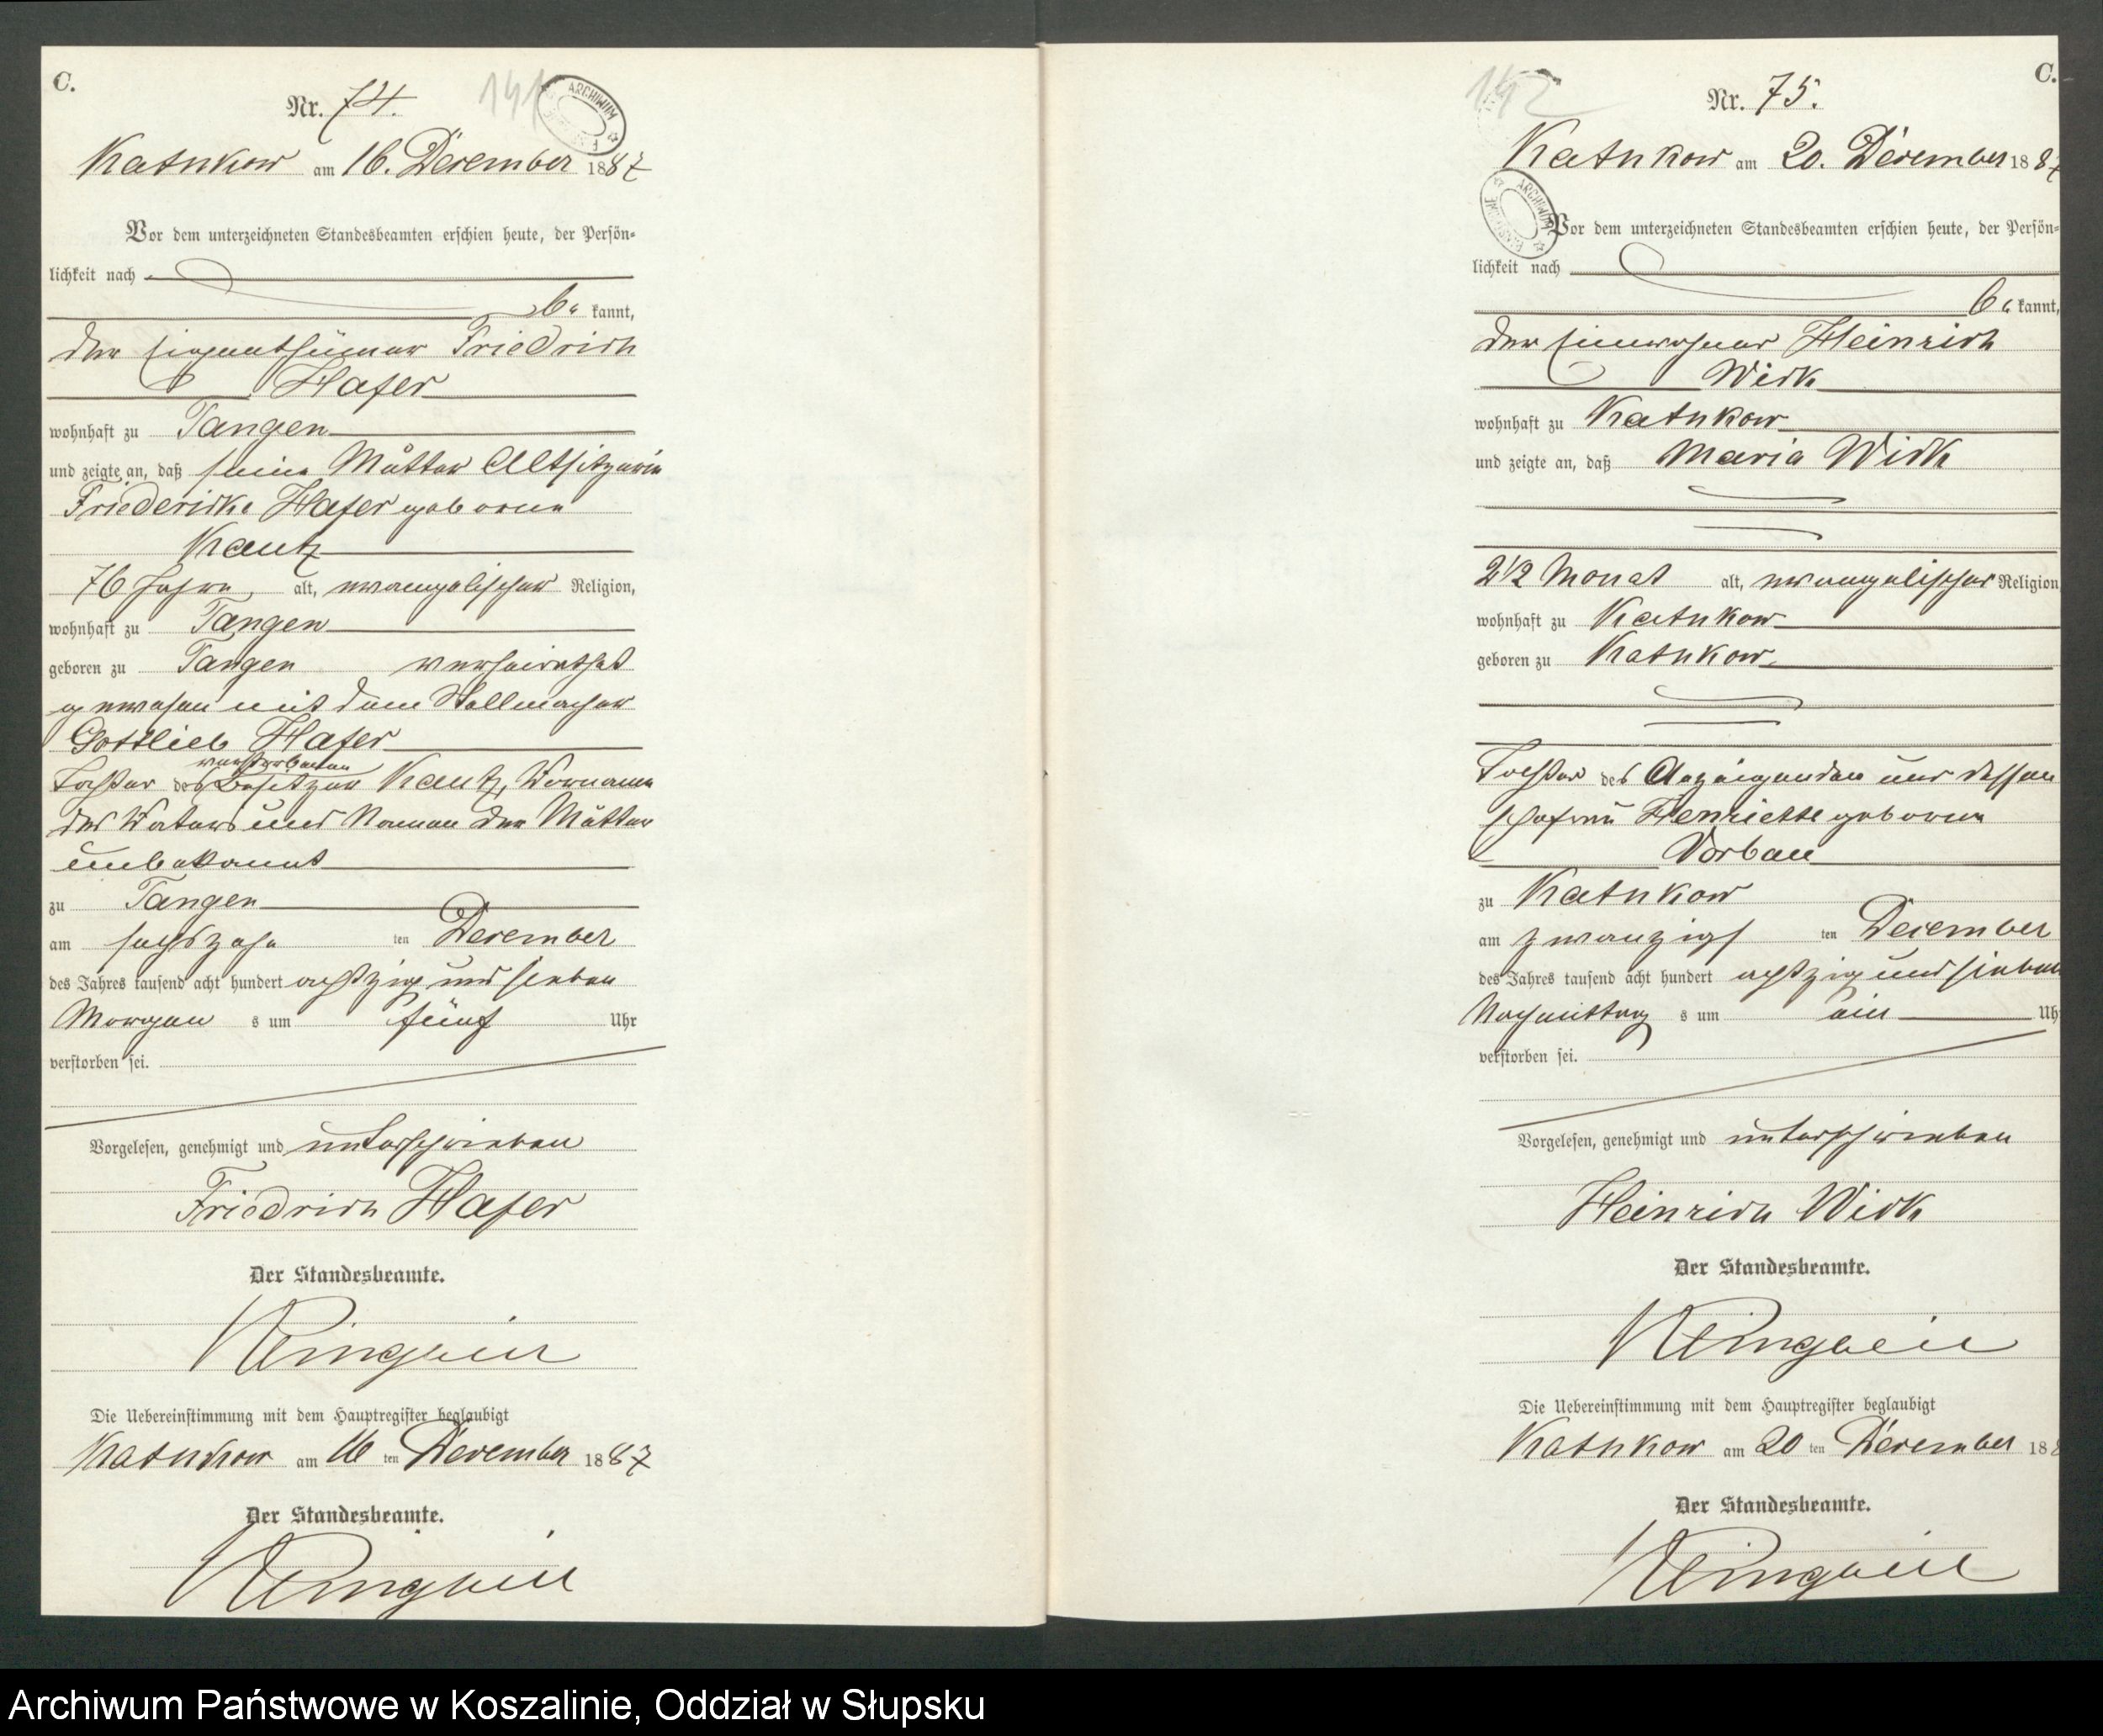 C.
Nr. 74.
141
ARCHIWUM
Katnkow am 16. December 1887
Vor dem unterzeichneten Standesbeamten erschien heute, der Persön-
lichkeit nach
be kannt,
der Eigenthümer Friedrich
Hafer
wohnhaft zu Tangen
und zeigte an, daß seine Mutter Altsitzerin
Friedericke Hafer geborene
Kautz
76 Jahre, alt, evangelischer Religion,
wohnhaft zu Tangen
geboren zu Tangen verheirathet
gewesen mit dem Stellmacher
Gottlieb Hafer
verstorbenen
Tochter des Besitzer Kautz, Vorname
des Vaters und Namen der Mutter
unbekannt
zu Tangen
am sechszehn ten December
des Jahres tausend acht hundert achtzig und sieben
Morgen s um fünf Uhr
verstorben sei.
Vorgelesen, genehmigt und unterschrieben
Friedrich Hafer
Der Standesbeamte.
Die Uebereinstimmung mit dem Hauptregister beglaubigt
Katnkow am 16 ten December 1887
Der Standesbeamte.
C.
Nr. 75.
142
ARCHIWUM
Katnkow am 20. December 1887
Vor dem unterzeichneten Standesbeamten erschien heute, der Persön-
lichkeit nach
be kannt,
der Einwohner Heinrich
Wick
wohnhaft zu Katnkow
und zeigte an, daß Maria Wick
2 1/2 Monat alt, evangelischer Religion
wohnhaft zu Katnkow
geboren zu Katnkow
Tochter des Anzeigenden und dessen
Ehefrau Henriette geborene
Vorbau
zu Katnkow
am zwanzigs ten December
des Jahres tausend acht hundert achtzig und sieben
Nachmittag s um ein Uh
verstorben sei.
Vorgelesen, genehmigt und unterschrieben
Heinrich Wick
Der Standesbeamte.
Die Uebereinstimmung mit dem Hauptregister beglaubigt
Katnkow am 20 ten December 188
Der Standesbeamte.
Archiwum Państwowe w Koszalinie, Oddział w Słupsku